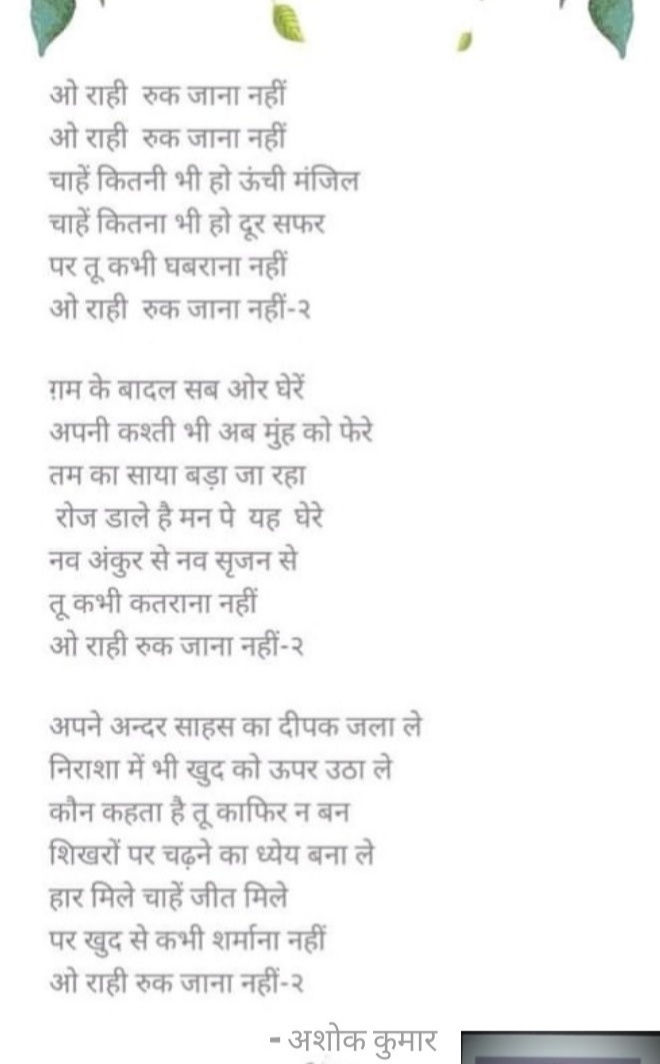 ओ राही रुक जाना नहीं
ओ राही रुक जाना नहीं
चाहें कितनी भी हो ऊंची मंजिल
चाहें कितना भी हो दूर सफर
पर तू कभी घबराना नहीं
ओ राही रुक जाना नहीं-२
ग़म के बादल सब ओर घेरें
अपनी कश्ती भी अब मुंह को फेरे
तम का साया बड़ा जा रहा
रोज डाले है मन पे यह घेरे
नव अंकुर से नव सृजन से
तू कभी कतराना नहीं
ओ राही रुक जाना नहीं-२
अपने अन्दर साहस का दीपक जला ले
निराशा में भी खुद को ऊपर उठा ले
कौन कहता है तू काफिर न बन
शिखरों पर चढ़ने का ध्येय बना ले
हार मिले चाहें जीत मिले
पर खुद से कभी शर्माना नहीं
ओ राही रुक जाना नहीं-२
- अशोक कुमार